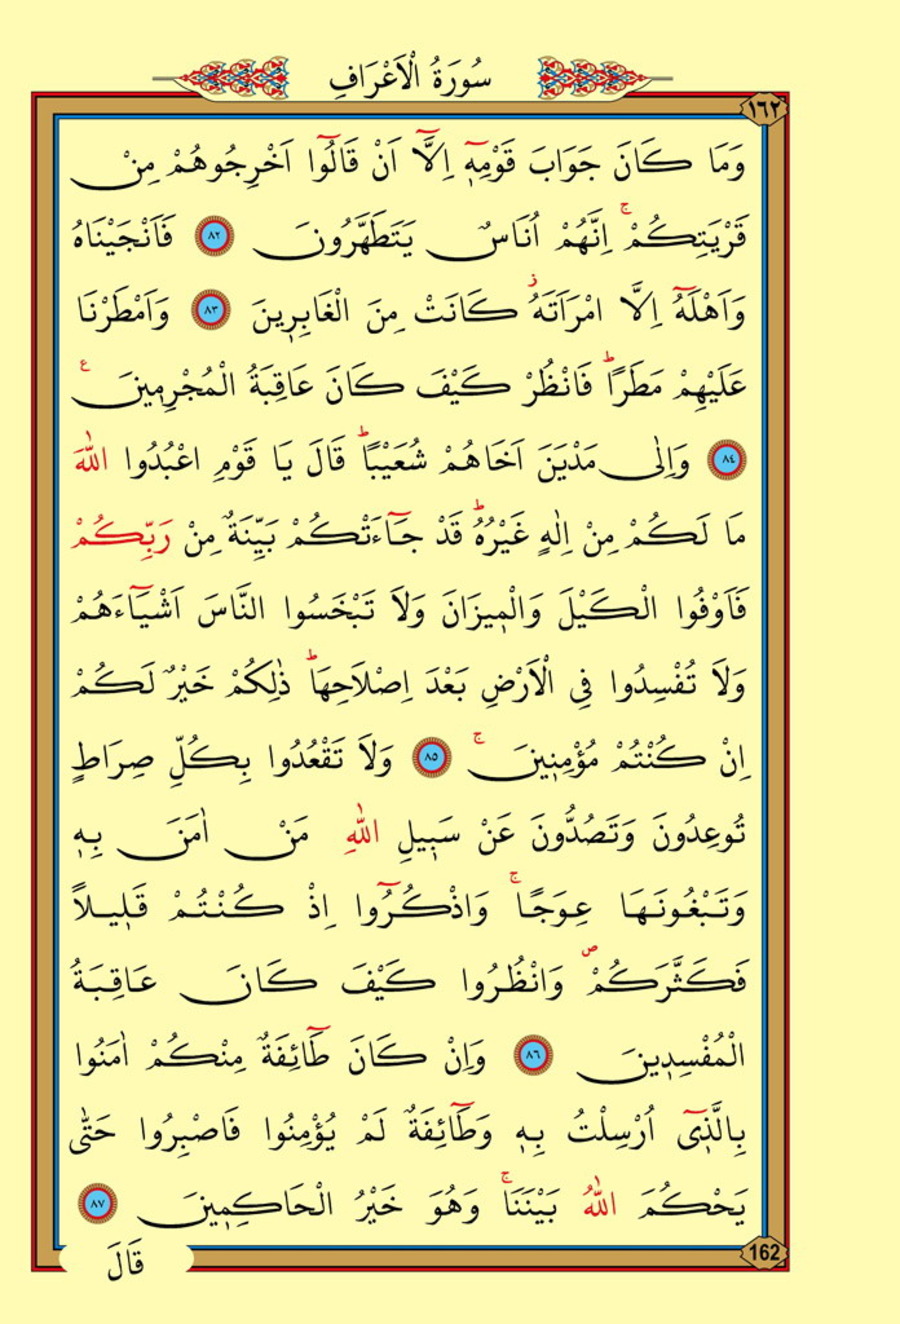 سُورَةُ الْاَعْرَافِ
١٦٢
وَمَا كَانَ جَوَابَ قَوْمِه۪ٓ اِلَّٓا اَنْ قَالُٓوا اَخْرِجُوهُمْ مِنْ
قَرْيَتِكُمْۚ اِنَّهُمْ اُنَاسٌ يَتَطَهَّرُونَ ٨٢ فَاَنْجَيْنَاهُ
وَاَهْلَهُٓ اِلَّا امْرَاَتَهُۘ كَانَتْ مِنَ الْغَابِر۪ينَ ٨٣ وَاَمْطَرْنَا
عَلَيْهِمْ مَطَرًاۜ فَانْظُرْ كَيْفَ كَانَ عَاقِبَةُ الْمُجْرِم۪ينَ ع
٨٤ وَاِلٰى مَدْيَنَ اَخَاهُمْ شُعَيْبًاۜ قَالَ يَا قَوْمِ اعْبُدُوا اللّٰهَ
مَا لَكُمْ مِنْ اِلٰهٍ غَيْرُهُۜ قَدْ جَٓاءَتْكُمْ بَيِّنَةٌ مِنْ رَبِّكُمْ
فَاَوْفُوا الْكَيْلَ وَالْم۪يزَانَ وَلَا تَبْخَسُوا النَّاسَ اَشْيَٓاءَهُمْ
وَلَا تُفْسِدُوا فِي الْاَرْضِ بَعْدَ اِصْلَاحِهَاۜ ذٰلِكُمْ خَيْرٌ لَكُمْ
اِنْ كُنْتُمْ مُؤْمِن۪ينَۚ ٨٥ وَلَا تَقْعُدُوا بِكُلِّ صِرَاطٍ
تُوعِدُونَ وَتَصُدُّونَ عَنْ سَب۪يلِ اللّٰهِ مَنْ اٰمَنَ بِه۪
وَتَبْغُونَهَا عِوَجًاۚ وَاذْكُرُٓوا اِذْ كُنْتُمْ قَل۪يلًا
فَكَثَّرَكُمْۖ وَانْظُرُوا كَيْفَ كَانَ عَاقِبَةُ
الْمُفْسِد۪ينَ ٨٦ وَاِنْ كَانَ طَٓائِفَةٌ مِنْكُمْ اٰمَنُوا
بِالَّذ۪ٓي اُرْسِلْتُ بِه۪ وَطَٓائِفَةٌ لَمْ يُؤْمِنُوا فَاصْبِرُوا حَتّٰى
يَحْكُمَ اللّٰهُ بَيْنَنَاۚ وَهُوَ خَيْرُ الْحَاكِم۪ينَ ٨٧
162
قَالَ